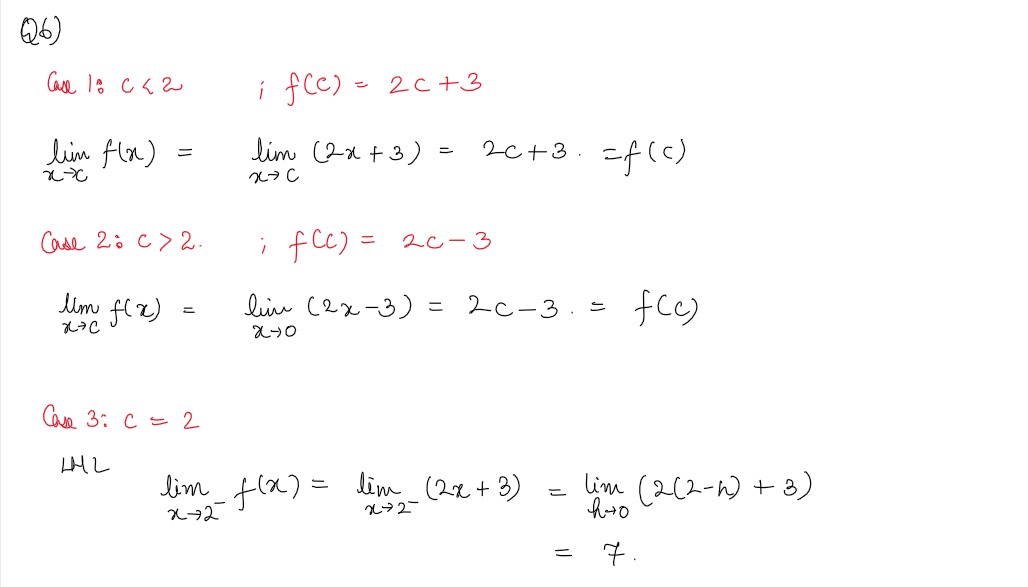 Q6)
Case 1: c < 2 ; f(c) = 2c + 3
lim x→c f(x) = lim x→c (2x + 3) = 2c + 3. = f(c)
Case 2: c > 2. ; f(c) = 2c - 3
lim x→c f(x) = lim x→0 (2x - 3) = 2c - 3. = f(c)
Case 3: c = 2
LHL
lim x→2⁻ f(x) = lim x→2⁻ (2x + 3) = lim h→0 (2(2-h) + 3)
= 7.